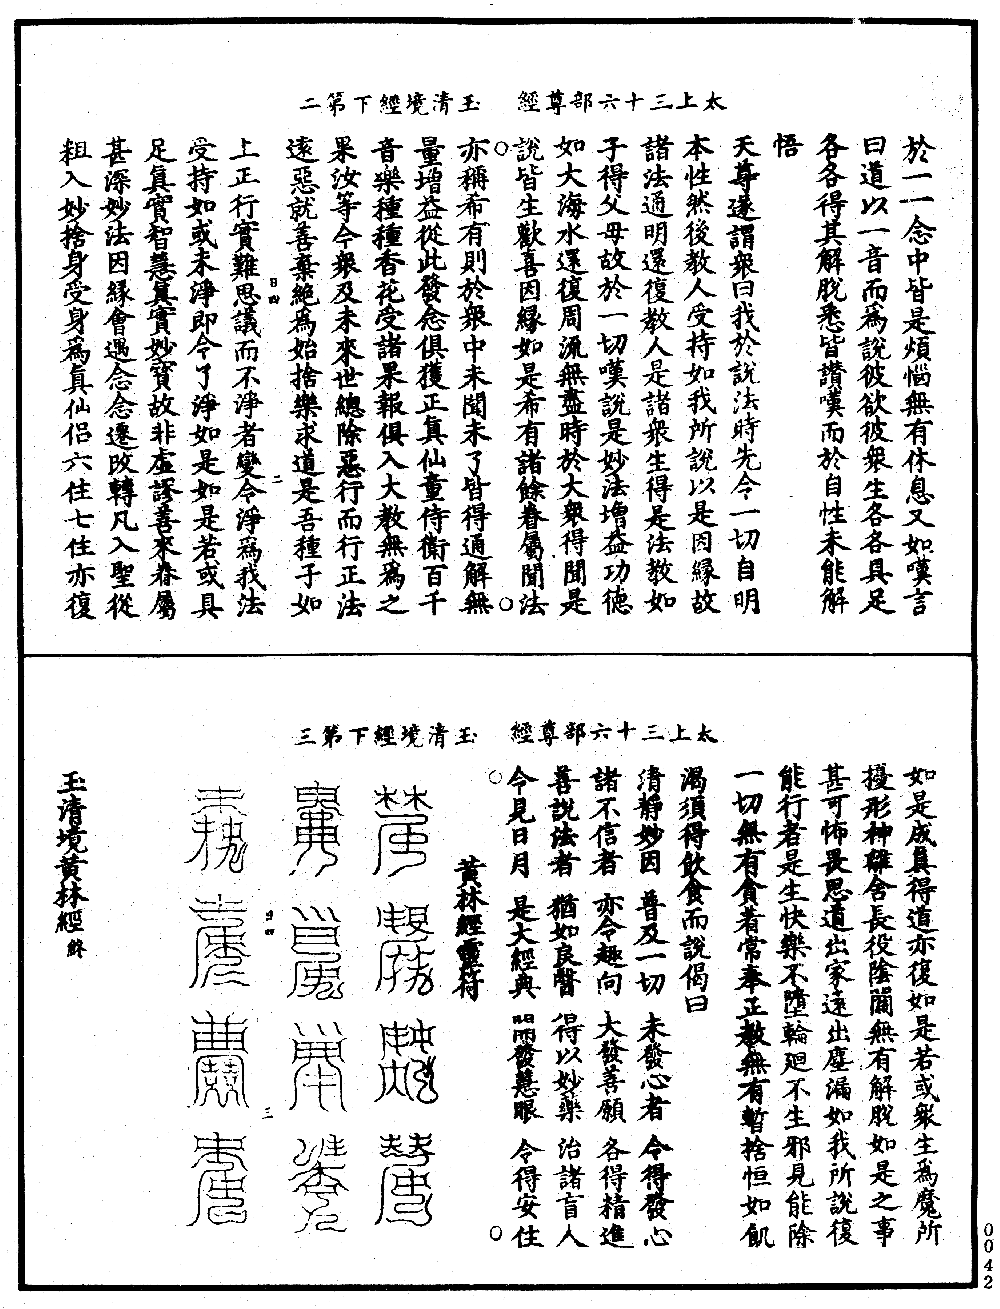 太上三十六部尊經　玉清境經下第二
於一一念中皆是煩惱無有休息又如嘆言
曰道以一音而為說彼欲彼衆生各各具足
各各得其解脫悉皆讚嘆而於自性未能解
悟
天尊遂謂衆曰我於說法時先令一切自明
本性然後教人受持如我所說以是因緣故
諸法通明還復教人是諸衆生得是法教如
子得父母故於一切嘆說是妙法增益功德
如大海水還復周流無盡時於大衆得聞是
說皆生歡喜因緣如是希有諸餘眷屬聞法
亦稱希有則於衆中未聞未了皆得通解無
量增益從此發念俱獲正真仙童侍衛百千
音樂種種香花受諸果報俱入大教無為之
果汝等今衆及未來世總除惡行而行正法
遠惡就善棄絕為始捨樂求道是吾種子如
日四　二
上正行實難思議而不淨者變令淨為我法
受持如或未淨即令了淨如是如是若或具
足真實智慧真實妙寶故非虛謬善來眷屬
甚深妙法因緣會遇念念遷改轉凡入聖從
粗入妙捨身受身為真仙侶六住七住亦復
太上三十六部尊經　玉清境經下第三
如是成真得道亦復如是若或衆生為魔所
擾形神離舍長役陰關無有解脫如是之事
甚可怖畏思道出家遠出塵漏如我所說復
能行者是生快樂不墮輪迴不生邪見能除
一切無有貪著常奉正教無有暫捨恒如飢
渴須得飲食而說偈曰
清靜妙因　普及一切　未發心者　令得發心
諸不信者　亦令趣向　大發善願　各得精進
善說法者　猶如良醫　得以妙藥　治諸盲人
今見日月　是大經典　開發慧眼　令得安住
黃林經靈符
日四　三
玉清境黃林經終
0042